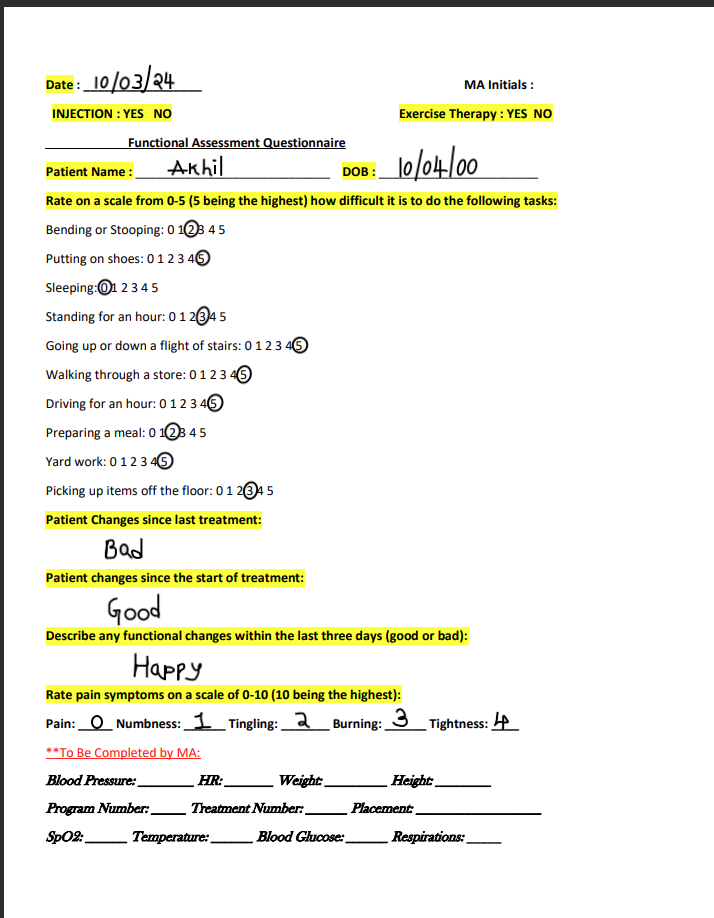 Date : 10/03/24 MA Initials :
INJECTION : YES NO Exercise Therapy : YES NO
Functional Assessment Questionnaire
Patient Name : Akhil DOB : 10/04/00
Rate on a scale from 0-5 (5 being the highest) how difficult it is to do the following tasks:
Bending or Stooping: 0 1 2 3 4 5
Putting on shoes: 0 1 2 3 4 5
Sleeping: 0 1 2 3 4 5
Standing for an hour: 0 1 2 3 4 5
Going up or down a flight of stairs: 0 1 2 3 4 5
Walking through a store: 0 1 2 3 4 5
Driving for an hour: 0 1 2 3 4 5
Preparing a meal: 0 1 2 3 4 5
Yard work: 0 1 2 3 4 5
Picking up items off the floor: 0 1 2 3 4 5
Patient Changes since last treatment:
Bad
Patient changes since the start of treatment:
Good
Describe any functional changes within the last three days (good or bad):
Happy
Rate pain symptoms on a scale of 0-10 (10 being the highest):
Pain: 0 Numbness: 1 Tingling: 2 Burning: 3 Tightness: 4
**To Be Completed by MA:
Blood Pressure: HR: Weight: Height:
Program Number: Treatment Number: Placement:
SpO2: Temperature: Blood Glucose: Respirations: